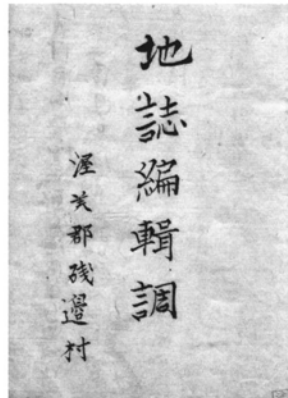 地誌編輯調
渥美郡磯邉村